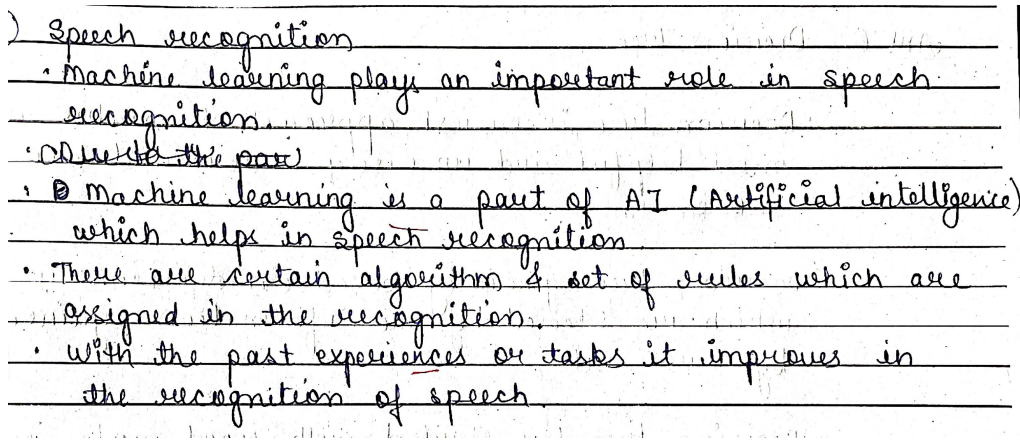 ) Speech recognition
• Machine learning plays an important role in speech
recognition.
• Due to the par
• Machine learning is a part of AI (Artificial intelligence)
which helps in speech recognition
• There are certain algorithm & set of rules which are
assigned in the recognition.
• With the past experiences or tasks it improves in
the recognition of speech.